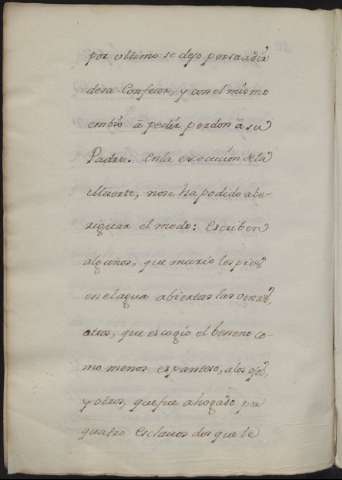 por ultimo se dejo persuadir
de su Confesor, y con el mismo
embió á pedir perdon á su
Padre. En la execucion de la
Muerte, no se ha podido abe-
riguar el modo: escriben
algunos, que murio los pies
en el agua abiertas las venas,
otros, que escogió el beneno co-
mo menos espantoso, a los ojos,
y otros, que fue ahogado por
quatro esclavos dos que le